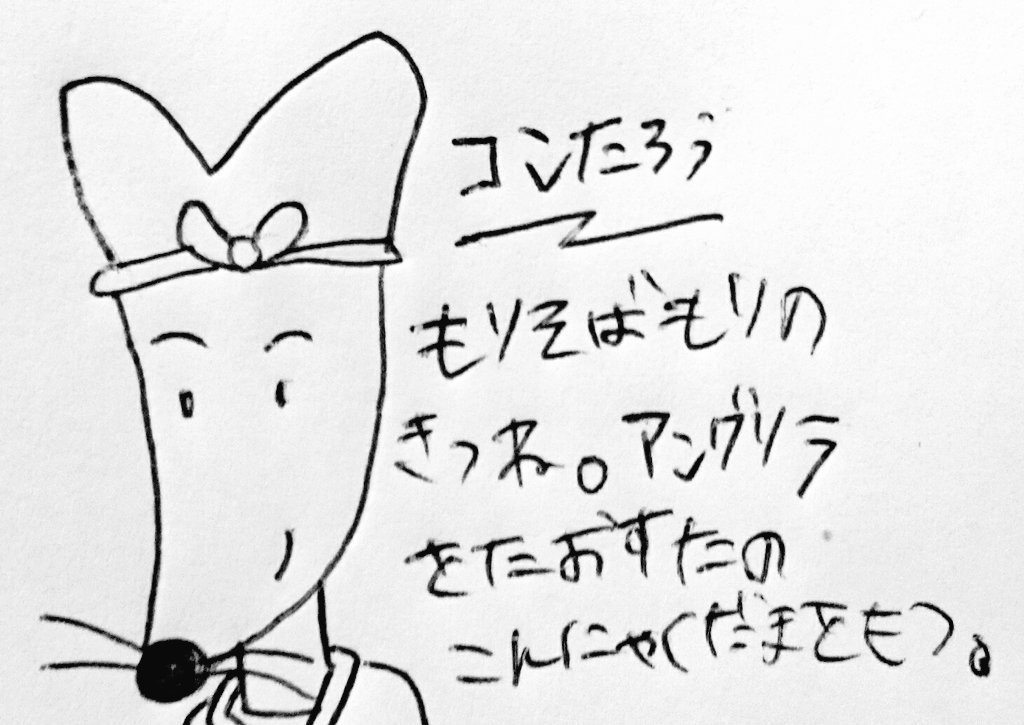 コンたろう
もりそばもりの
きつね。アングリラ
をたおすたの
こんにゃくだまをもつ。